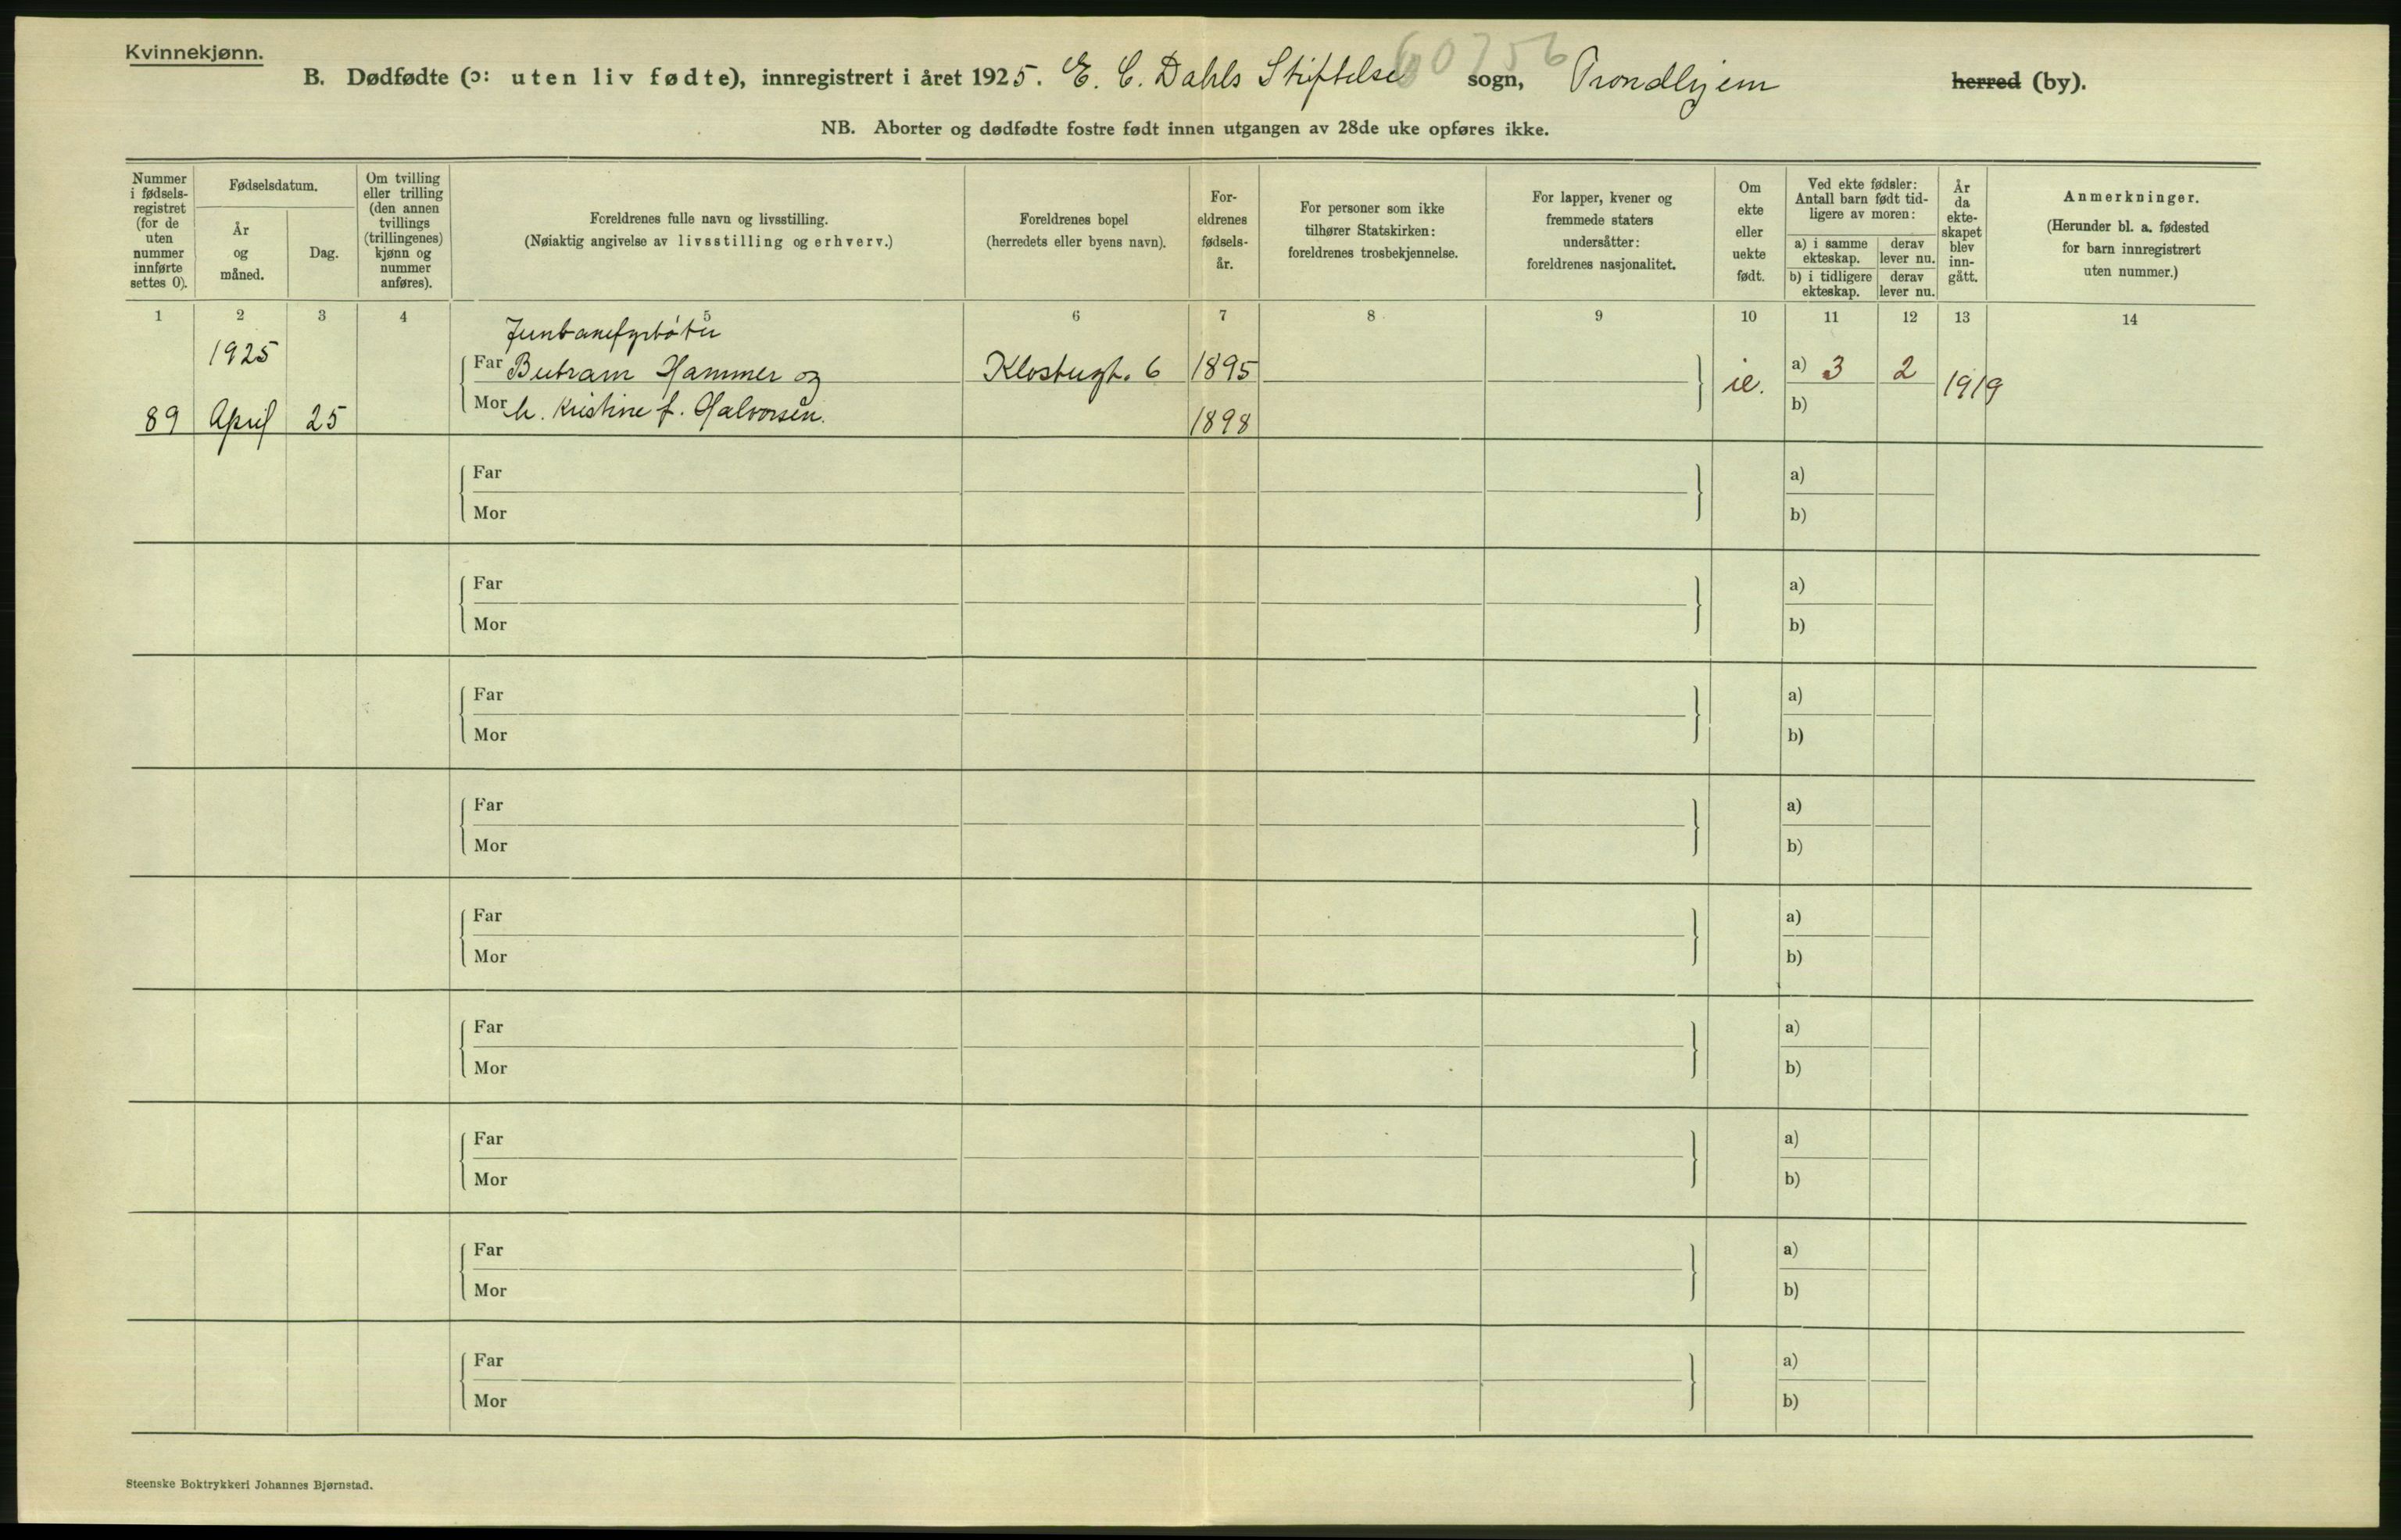 Kvinnekjønn.
B. Dødfødte (ɔ: uten liv fødte), innregistrert i året 1925. E. C. Dahls Stiftelse sogn, Trondhjem herred (by).
60756
NB. Aborter og dødfødte fostre født innen utgangen av 28de uke opføres ikke.
Nummer i fødsels-registret (for de uten nummer innførte settes 0).
Fødselsdatum.
År og måned.
Dag.
Om tvilling eller trilling (den annen tvillings (trillingenes) kjønn og nummer anføres).
Foreldrenes fulle navn og livsstilling.
(Nøiaktig angivelse av livsstilling og erhverv.)
Foreldrenes bopel
(herredets eller byens navn).
For-eldrenes fødsels-år.
For personer som ikke tilhører Statskirken: foreldrenes trosbekjennelse.
For lapper, kvener og fremmede staters undersåtter: foreldrenes nasjonalitet.
Om ekte eller uekte født.
Ved ekte fødsler: Antall barn født tid-ligere av moren:
a) i samme ekteskap.
derav lever nu.
b) i tidligere ekteskap.
derav lever nu.
År da ekte-skapet blev inn-gått.
Anmerkninger.
(Herunder bl. a. fødested for barn innregistrert uten nummer.)
1 2 3 4 5 6 7 8 9 10 11 12 13 14
Jernbanefyrbøter
1925 Far Bertram Hammer og Klostergt. 6 1895 a) 3 2 1919
89 April 25 Mor h. Kristine f. Halvorsen. 1898 b)
Far a)
Mor b)
Far a)
Mor b)
Far a)
Mor b)
Far a)
Mor b)
Far a)
Mor b)
Far a)
Mor b)
Far a)
Mor b)
Far a)
Mor b)
Far a)
Mor b)
Steenske Boktrykkeri Johannes Bjørnstad.